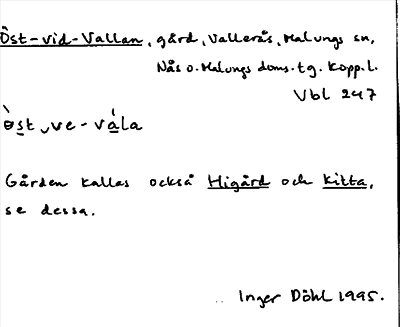 Öst-vid-Vallan, gård, Vallerås, Malungs sn,
Nås o. Malungs doms. tg. Kopp. l.
Vbl 247
òst ve-vála
Gården kallas också Higård och Kitta,
se dessa.
Inger Döhl 1995.